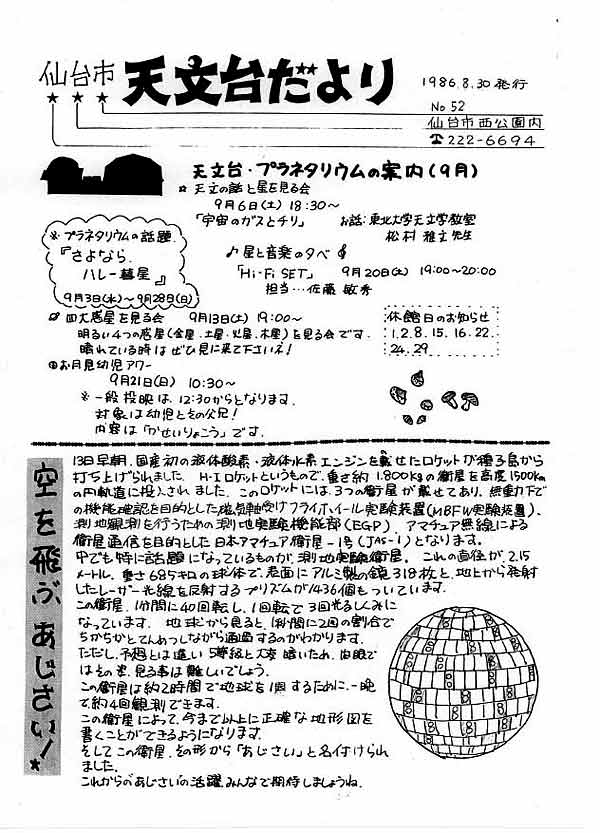 仙台市 天文台だより
1986.8.30 発行
No 52
仙台市西公園内
☎222-6694
天文台・プラネタリウムの案内(9月)
☆ 天文の話と星を見る会
9月6日(土) 18:30〜
「宇宙のガスとチリ」 お話:東北大学天文学教室
松村 雅文先生
※ プラネタリウムの話題
『さよなら
ハレー彗星』
9月3日(水)〜9月28日(日)
♪ 星と音楽の夕べ
「Hi-Fi SET」 9月20日(土) 19:00〜20:00
担当…佐藤 敏秀
四大惑星を見る会 9月13日(土) 19:00〜
明るい4つの惑星(金星、土星・火星、木星)を見る会です.
晴れている時はぜひ見に来て下さいネ!
お月見幼児アワー
9月21日(日) 10:30〜
※ 一般投映は、12:30からとなります.
対象は幼児とその父兄!
内容は「かせいりょこう」です.
休館日のお知らせ
1.2.8.15.16.22.
24.29
空を飛ぶあじさい!
13日早朝、国産初の液体酸素・液体水素エンジンを載せたロケットが種子島から
打ち上げられました. H-Iロケットというもので、重さ約1.800kgの衛星を高度1500km
の円軌道に投入されました. このロケットには、3つの衛星が載せてあり、無重力下で
の機能確認を目的とした磁気軸受けフライホイール実験装置(MBFW実験装置).
測地観測を行うための測地実験機能部(EGP)、アマチュア無線による
衛星通信を目的とした日本アマチュア衛星-1号(JAS-1)となります.
中でも特に話題になっているものが、測地実験衛星. これの直径が、2.15
メートル、重さ685キロの球体で、表面にアルミ製の鏡318枚と、地上から発射
したレーザー光線を反射するプリズムが1436個もついています.
この衛星、1分間に40回転し、1回転で3回光るしくみに
なっています. 地球から見ると、1秒間に2回の割合で
ちかちかとてんめつしながら通過するのがわかります.
ただし、予想とは違い5等級と大変暗いため、肉眼で
はその姿、見る事は難しいでしょう.
この衛星は約2時間で地球を1周するために、一晩
で約4回観測できます.
この衛星によって、今まで以上に正確な地形図を
書くことができるようになります.
そしてこの衛星、その形から「あじさい」と名付けられ
ました.
これからのあじさいの活躍、みんなで期待しましょうね.